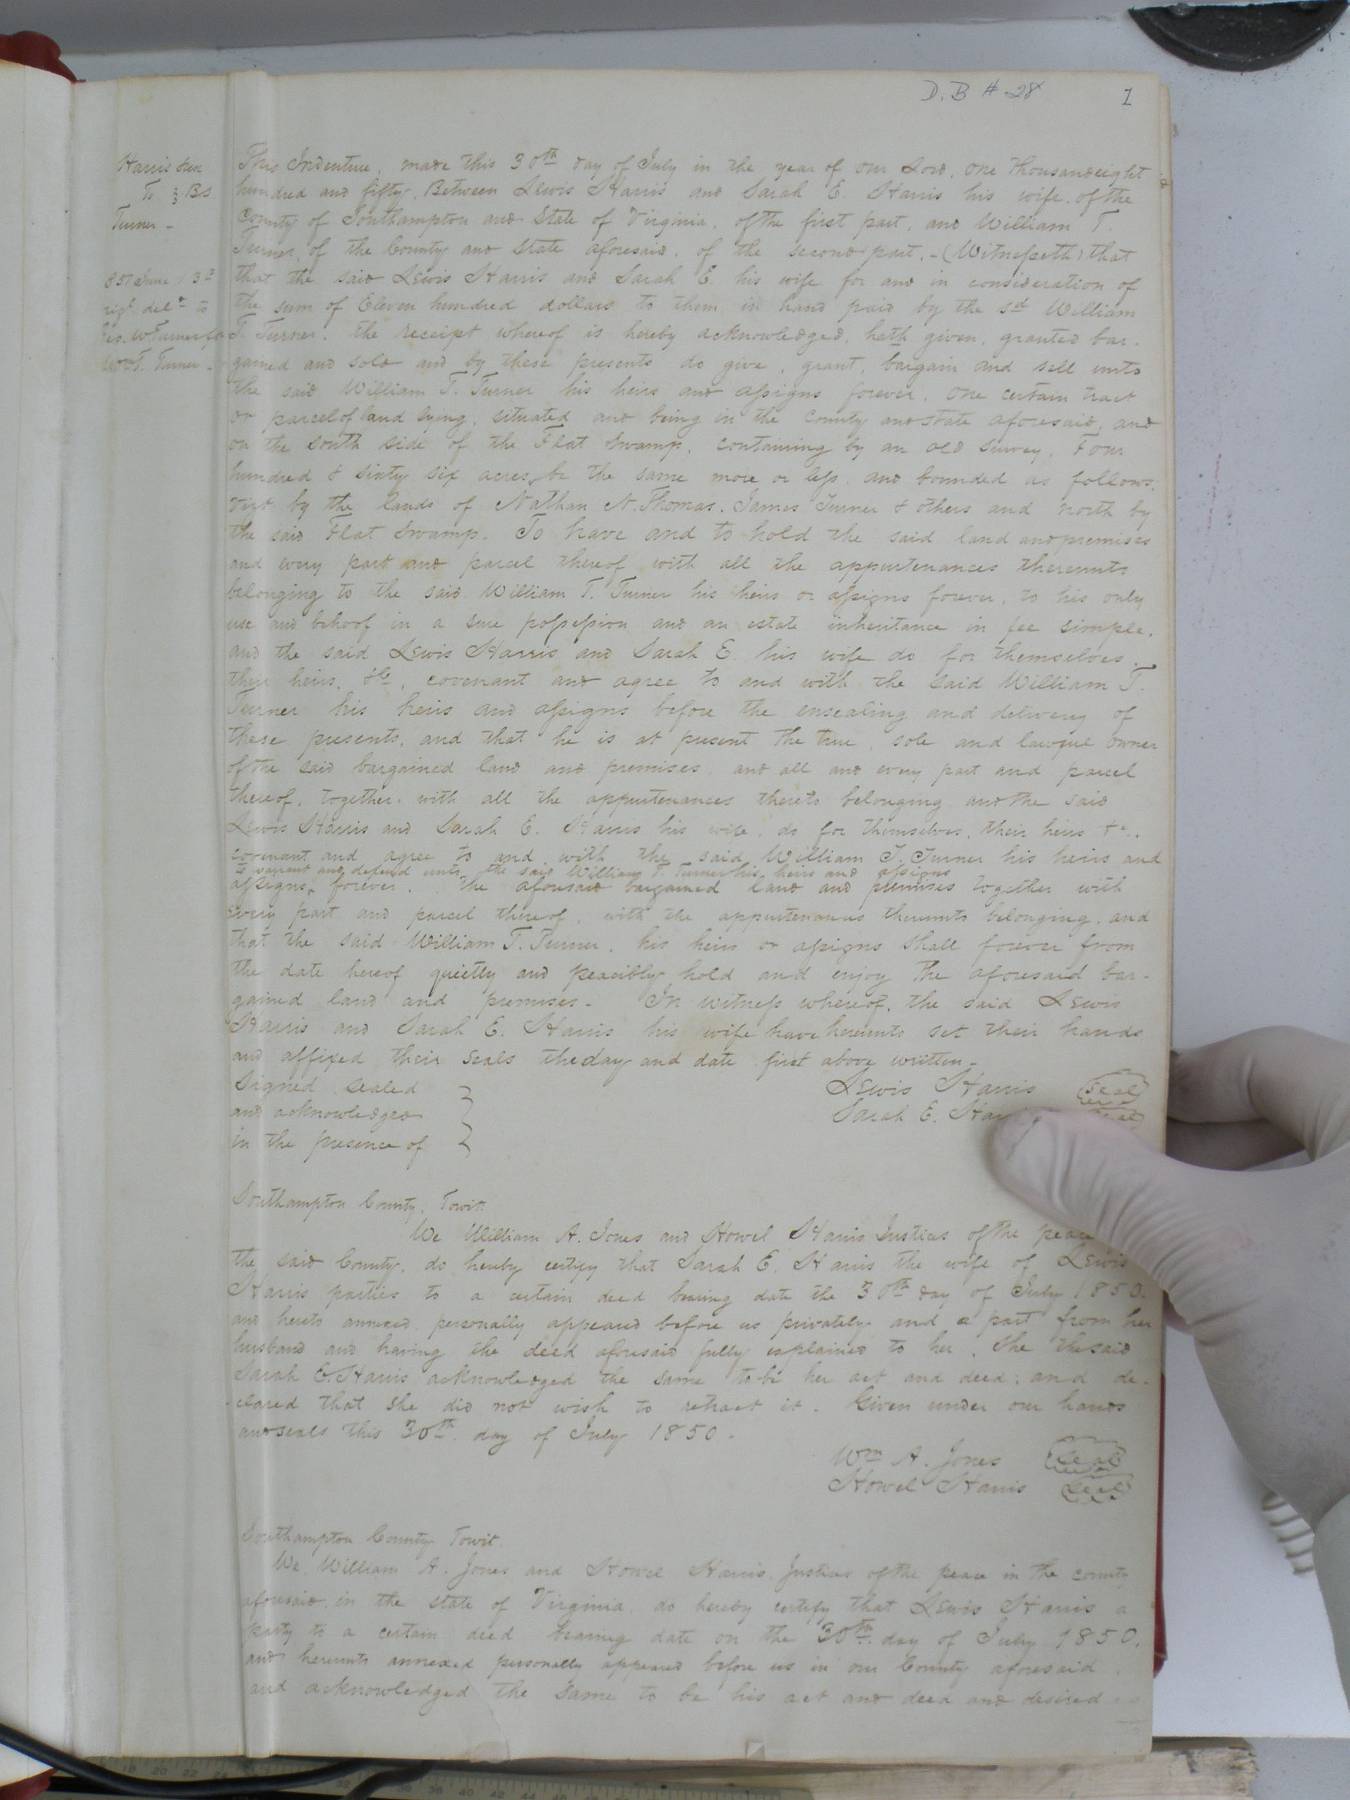 D. B # 28
1
Harris &ux
To } B&S
Turner -
This Indenture, made this 30th day of July in the year of our Lord, one thousand eight
hundred and fifty, Between Lewis Harris and Sarah E. Harris his wife, of the
County of Southampton and State of Virginia, of the first part, and William T.
Turner, of the County and State aforesaid, of the second part, - (Witnesseth) that
that the said Lewis Harris and Sarah E. his wife for and in consideration of
the sum of Eleven hundred dollars to them in hand paid by the sd William
T. Turner, the receipt whereof is hereby acknowledged, hath given, granted bar-
gained and sold and by these presents do give, grant, bargain and sell unto
the said William T. Turner his heirs and assigns forever, one certain tract
or parcel of land lying, situated and being in the County and State aforesaid, and
on the south side of the Flat Swamp, containing by an old survey, Four
hundred & sixty six acres, be the same more or less, and bounded as follows,
by the lands of Nathan N. Thomas, James Turner & others and north by
the said Flat Swamp. To have and to hold the said land and premises
and every part and parcel thereof with all the appurtenances thereunto
belonging to the said William T. Turner his heirs or assigns forever, to his only
use and behoof in a sure possession and an estate inheritance in fee simple,
and the said Lewis Harris and Sarah E. his wife do for themselves,
their heirs, &c, covenant and agree to and with the said William T.
Turner his heirs and assigns before the ensealing and delivery of
these presents, and that he is at present the true, sole and lawful owner
of the said bargained land and premises and all and every part and parcel
thereof, together with all the appurtenances thereto belonging and the said
Lewis Harris and Sarah E. Harris his wife, do for themselves, their heirs &c.,
covenant and agree to and with the said William T. Turner his heirs and
to warrant and defend unto the said William T. Turner his heirs and assigns
assigns, forever, the aforesaid bargained land and premises together with
every part and parcel thereof, with the appurtenances thereunto belonging, and
that the said William T. Turner, his heirs or assigns shall forever from
the date hereof quietly and peacibly hold and enjoy the aforesaid bar-
gained land and premises - In witness whereof, the said Lewis
Harris and Sarah E. Harris his wife have hereunto set their hands
and affixed their seals the day and date first above written -
Signed sealed } Lewis Harris (Seal)
and acknowledged } Sarah E. (Seal)
in the presence of }
Southampton County, Towit
We William A. Jones and Howel Harris Justices of the peace
the said County, do hereby certify that Sarah E. Harris the wife of Lewis
Harris parties to a certain deed bearing date the 30th day of July 1850.
and hereto annexed, personally appeared before us privately and a part from her
husband and having the deed aforesaid fully explained to her, she the said
Sarah E. Harris acknowledged the same to be her act and deed; and de-
clared that she did not wish to retract it. Given under our hands
and seals this 30th day of July 1850.
Wm A. Jones (Seal)
Howel Harris (Seal)
Southampton County Towit
We William A. Jones and Howel Harris, Justices of the peace in the county
aforesaid, in the state of Virginia, do hereby certify that Lewis Harris a
party to a certain deed bearing date on the 30th day of July 1850,
and hereunto annexed personally appeared before us in our County aforesaid,
and acknowledged the same to be his act and deed and desired